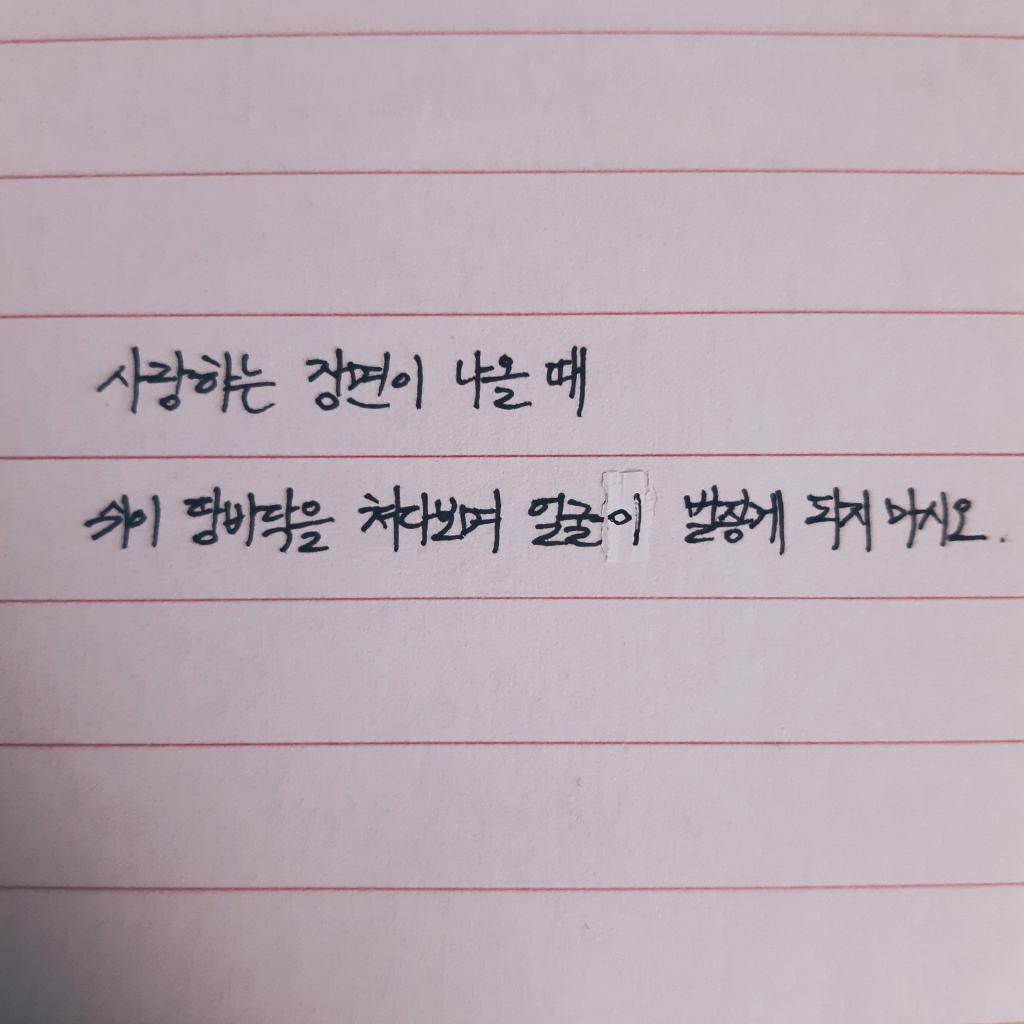 사랑하는 장면이 나올 때
쇠이 땅바닥을 쳐다보며 얼굴이 빨갛게 되지 마시오.